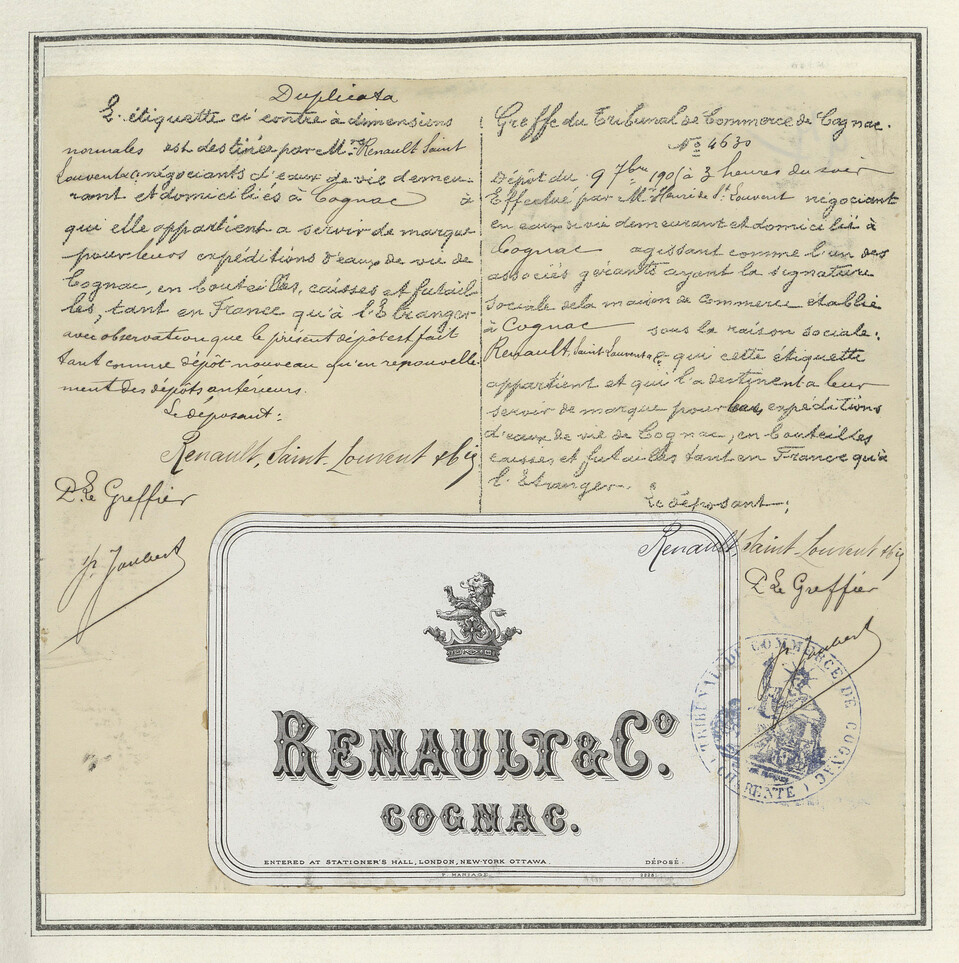 Duplicata
L'étiquette ci contre à dimensions
normales est destinée par M.rs Renault Saint
Louvent & Cie négociants d'eaux de vie demeu-
rant et domiciliés à Cognac à
qui elle appartient a servir de marque
pour leurs expéditions d'eaux de vie de
Cognac, en bouteilles, caisses et futail-
les, tant en France qu'à l'Etranger
avec observation que le présent dépôt est fait
tant comme dépôt nouveau qu'en renouvelle-
ment des dépôts antérieurs.
Le déposant:
Renault, Saint-Louvent & Cie
P. Le Greffier
Joubert
Greffe du Tribunal de Commerce de Cognac.
No 4630
Dépôt du 9 7bre à 3 heures du soir
Effectué par Mr Henri de St Louvent négociant
en eaux de vie demeurant et domicilié à
Cognac agissant comme l'un des
associés gérants ayant la signature
sociale de la maison de commerce établie
à Cognac sous la raison sociale:
Renault, Saint-Louvent & Cie qui cette étiquette
appartient et qui l'a destinent a leur
servir de marque pour expéditions
d'eaux de vie de Cognac, en bouteilles
caisses et futailles tant en France qu'à
l'Etranger.
Le déposant:
Renault, Saint-Louvent & Cie
P. Le Greffier
Joubert
TRIBUNAL DE COMMERCE DE COGNAC
(CHARENTE)
RENAULT & Co.
COGNAC.
ENTERED AT STATIONER'S HALL, LONDON, NEW-YORK OTTAWA. DÉPOSÉ.
F. MARIAGE